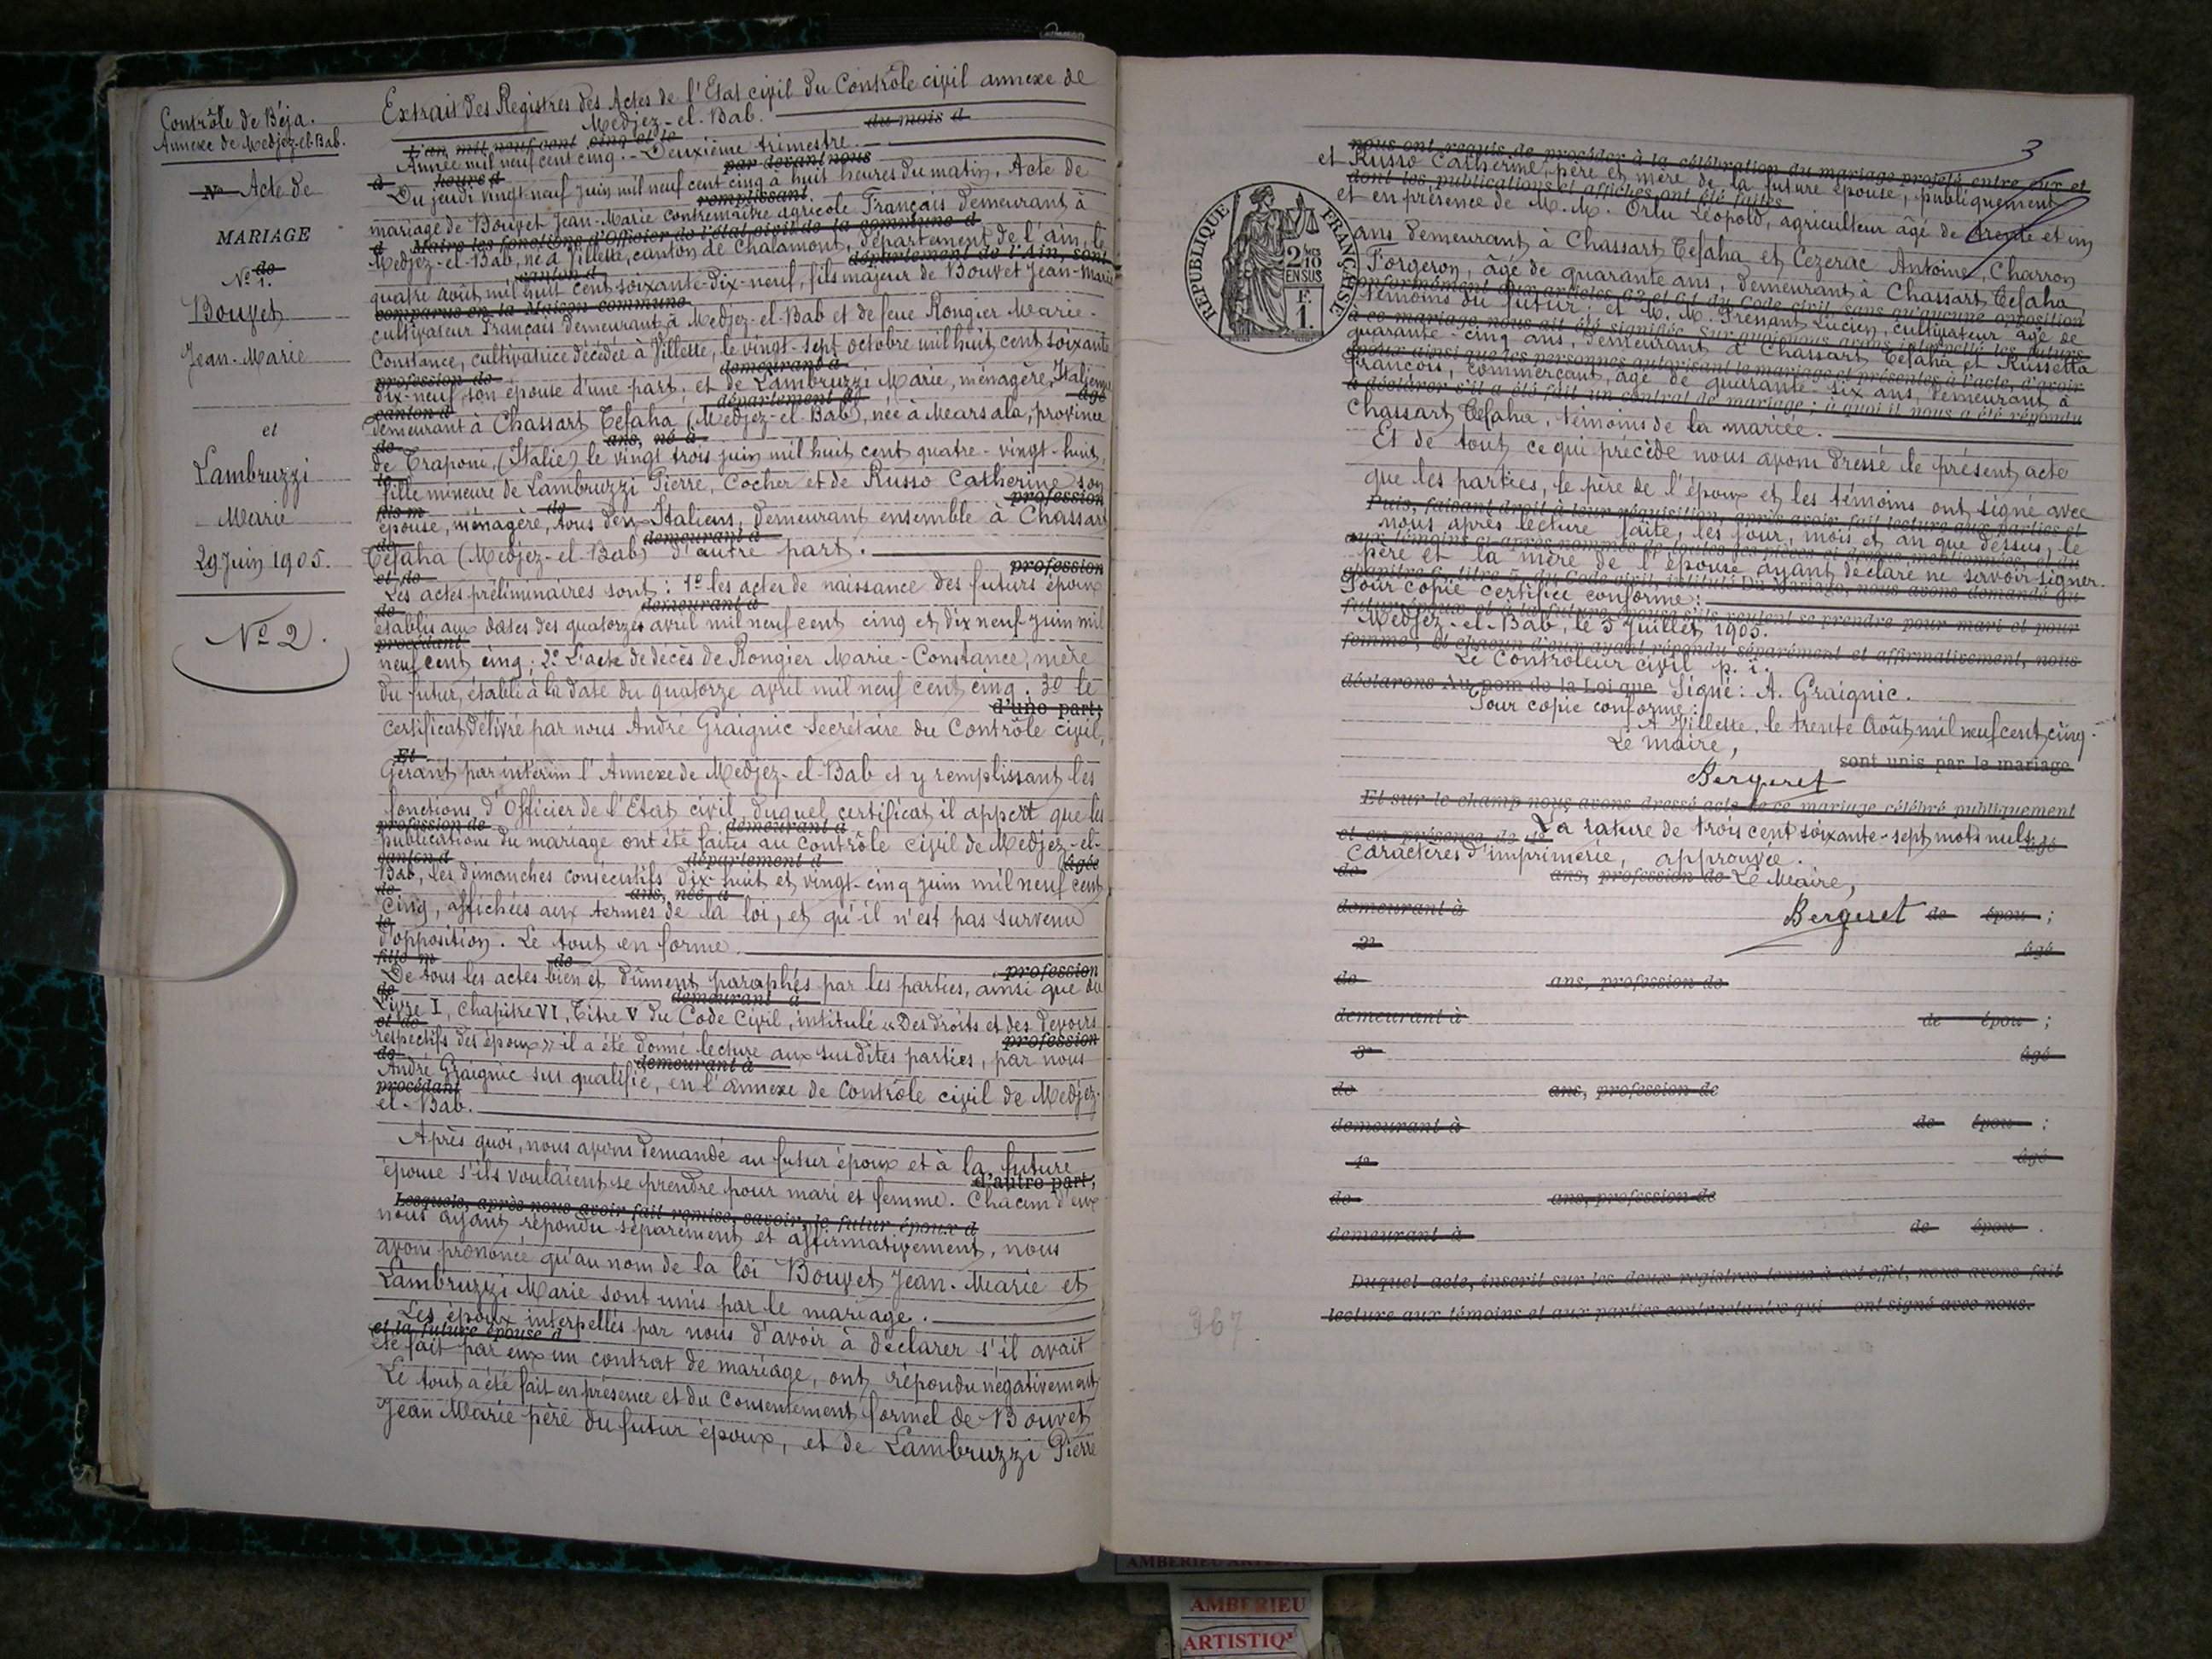 Contrôle de Béja.
Annexe de Medjez-el-Bab.
N° Acte de
MARIAGE
de
N° 1.
Bouvet
Jean-Marie
et
Lambruzzi
Marie
29 Juin 1905.
N° 2.
Extrait des Registres des Actes de l'Etat civil du Contrôle civil annexe de
Medjez-el-Bab.
du mois d
L'an mil neuf cent cinq et le
Année mil neuf cent cinq. - Deuxième trimestre.
par-devant nous
à heure d
Du jeudi vingt-neuf Juin mil neuf cent cinq à huit heures du matin. Acte de
remplissant
mariage de Bouvet Jean-Marie contremaître agricole Français demeurant à
d Maire les fonctions d'Officier de l'état civil de la commune d
Medjez-el-Bab, né à Villette, canton de Chalamont, département de l'Ain, le
canton d département de l'Ain, sont
quatre août mil huit cent soixante-dix-neuf, fils majeur de Bouvet Jean-Marie
comparus en la Maison commune
cultivateur Français demeurant à Medjez-el-Bab et de feue Rongier Marie-
Constance, cultivatrice décédée à Villette, le vingt-sept octobre mil huit cent soixante
profession de demeurant à
dix-neuf son épouse d'une part; et de Lambruzzi Marie, ménagère, Italienne
canton d département d âgé
demeurant à Chassart Tefaha (Medjez-el-Bab), née à Mearsala, province
de ans, né à
de Traponi, (Italie) le vingt trois juin mil huit cent quatre-vingt-huit,
le
fille mineure de Lambruzzi Pierre, Cocher et de Russo Catherine son
fils m de profession
épouse, ménagère, tous deux Italiens, demeurant ensemble à Chassart
de demeurant à
Tefaha (Medjez-el-Bab) d'autre part.
et de profession
Les actes préliminaires sont: 1° les actes de naissance des futurs époux
de demeurant à
établis aux dates des quatorze avril mil neuf cent cinq et dix neuf juin mil
procédant
neuf cent cinq; 2° L'acte de décès de Rongier Marie-Constance, mère
du futur, établi à la date du quatorze avril mil neuf cent cinq. 3° le
d'une part;
certificat délivré par nous André Graignic Secrétaire du Contrôle civil,
Et
Gérant par intérim l'Annexe de Medjez-el-Bab et y remplissant les
fonctions d'Officier de l'Etat civil, duquel certificat il appert que les
profession de demeurant à
publications du mariage ont été faites au Contrôle civil de Medjez-el-
canton d département d âgée
Bab, les dimanches consécutifs dix-huit et vingt-cinq juin mil neuf cent
de ans, née à
cinq, affichées aux termes de la loi, et qu'il n'est pas survenu
le
d'opposition. Le tout en forme.
fille m de profession
De tous les actes bien et dûment paraphés par les parties, ainsi que du
de demeurant à
Livre I, chapitre VI, Titre V du Code Civil, intitulé « Des droits et des devoirs
et de profession
respectifs des époux » il a été donné lecture aux sus dites parties, par nous
de demeurant à
André Graignic sus qualifié, en l'annexe de Contrôle civil de Medjez-
procédant
el-Bab.
Après quoi, nous avons demandé au futur époux et à la future
épouse s'ils voulaient se prendre pour mari et femme. Chacun d'eux
d'autre part;
Lesquels, après nous avoir fait remise, savoir, le futur époux d
nous ayant répondu séparément et affirmativement, nous
avons prononcé qu'au nom de la loi Bouvet Jean-Marie et
Lambruzzi Marie sont unis par le mariage.
Les époux interpellés par nous d'avoir à déclarer s'il avait
et la future épouse d
été fait par eux un contrat de mariage, ont répondu négativement
Le tout a été fait en présence et du Consentement formel de Bouvet
Jean Marie père du futur époux, et de Lambruzzi Pierre
3
nous ont requis de procéder à la célébration du mariage projeté entre eux et
et Russo Catherine, père et mère de la future épouse, publiquement
dont les publications et affiches ont été faites
et en présence de M.M. Orlu Léopold, agriculteur âgé de trente et un
ans demeurant à Chassart Tefaha et Cezerac Antoine, Charron
Forgeron, âgé de quarante ans, demeurant à Chassart Tefaha
conformément aux articles 63 et 64 du Code civil, sans qu'aucune opposition
témoins du futur; et M.M. Fressant Lucien, cultivateur âgé de
à ce mariage nous ait été signifiée. Sur quoi nous avons interpellé les futurs
quarante-cinq ans, demeurant à Chassart Tefaha et Russetta
époux ainsi que les personnes autorisant le mariage et présentes à l'acte, d'avoir
François, commerçant, âgé de quarante-six ans, demeurant à
à déclarer s'il a été fait un contrat de mariage; à quoi il nous a été répondu
Chassart Tefaha, témoins de la mariée.
Et de tout ce qui précède nous avons dressé le présent acte
que les parties, le père de l'époux et les témoins ont signé avec
Puis, faisant droit à leur réquisition, après avoir fait lecture aux parties et
nous après lecture faite, les jour, mois et an que dessus, le
aux témoins ci-après nommés de toutes les pièces ci-dessus mentionnées, et du
père et la mère de l'épouse ayant déclaré ne savoir signer.
chapitre 6, titre 5, du Code civil, intitulé Du Mariage, nous avons demandé au
Pour copie certifiée conforme:
futur époux et à la future épouse s'ils veulent se prendre pour mari et pour
Medjez-el-Bab, le 3 Juillet 1905.
femme; et chacun d'eux ayant répondu séparément et affirmativement, nous
Le Contrôleur civil p. i.
déclarons Au nom de la Loi que Signé: A. Graignic.
Pour copie conforme:
A Villette, le trente Août mil neuf cent cinq.
Le Maire,
sont unis par le mariage
Bergeret
Et sur le champ nous avons dressé acte de ce mariage célébré publiquement
et en présence de 1° La rature de trois cent soixante-sept mots nuls âgé
Caractères d'imprimerie, approuvée.
de ans, profession de Le Maire,
demeurant à Bergeret de épou ;
2° âgé
de ans, profession de
demeurant à de épou ;
3° âgé
de ans, profession de
demeurant à de épou ;
4° âgé
de ans, profession de
demeurant à de épou .
Duquel acte, inscrit sur les deux registres tenus à cet effet, nous avons fait
lecture aux témoins et aux parties contractantes qui ont signé avec nous.
RÉPUBLIQUE FRANÇAISE
2/10
EN SUS
F.
1.
367
AMBERIEU
ARTISTIQ